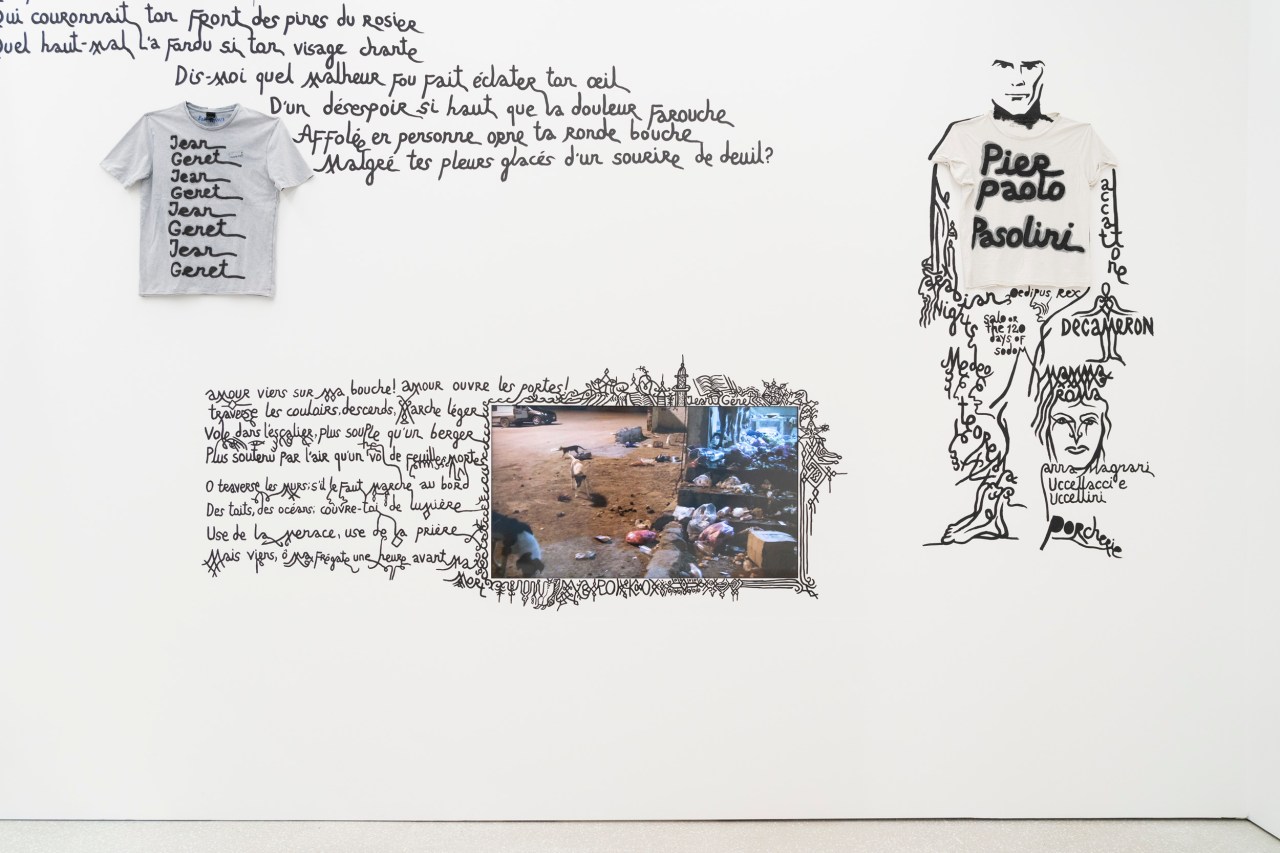 Qui couronnait ton front des pines du rosier
Quel haut-mal l'a fondu si ton visage chante
Dis-moi quel malheur fou fait éclater ton œil
D'un désespoir si haut que la douleur farouche
Affolée en personne orne ta ronde bouche
Malgré tes pleurs glacés d'un sourire de deuil?
Jean
Genet
Jean
Genet
Jean
Genet
Jean
Genet
amour viens sur ma bouche! amour ouvre les portes!
traverse les couloirs, descends, marche léger
Vole dans l'escalier, plus souple qu'un berger
Plus soutenu par l'air qu'un vol de feuilles mortes
O traverse les murs; s'il le faut marche au bord
Des toits, des océans; couvre-toi de lumière
Use de la menace, use de la prière
Mais viens, ô ma frégate une heure avant ma
Jean Genet
Pier
Paolo
Pasolini
accattone
Arabian
Nights
Oedipus Rex
Salo or
the 120
days of
sodom
DECAMERON
Medea
MAMMA
ROMA
teorema
anna Magnani
Uccellacci e
Uccellini
Porcherie